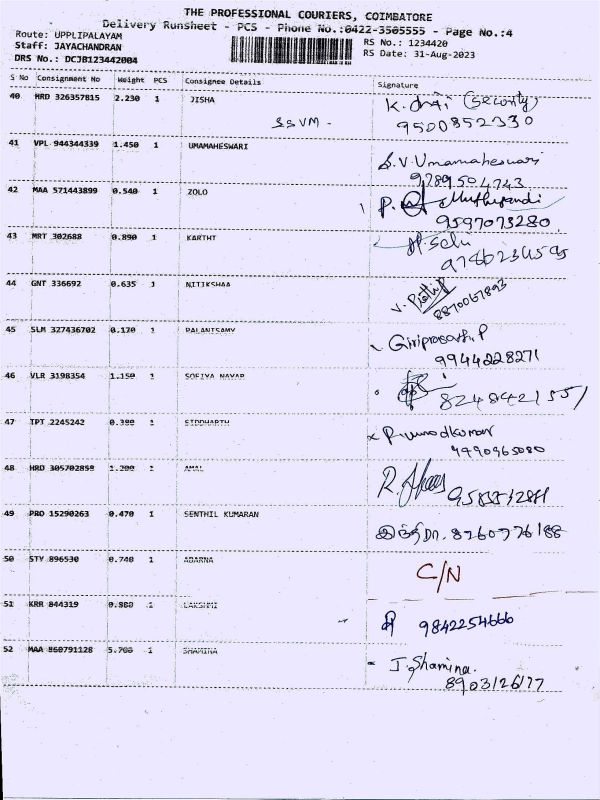 THE PROFESSIONAL COURIERS, COIMBATORE
Delivery Runsheet - PCS - Phone No.:0422-3505555 - Page No.:4
Route: UPPLIPALAYAM
Staff: JAYACHANDRAN
DRS No.: DCJB123442004
RS No.: 1234420
RS Date: 31-Aug-2023
S No Consignment No Weight PCS Consignee Details Signature
40 HRD 326357815 2.230 1 JISHA
SSVM -
(Security)
9500852330
41 VPL 944344339 1.450 1 UMAMAHESWARI
S.V.Umamaheswari
9789504743
42 MAA 571443899 0.540 1 ZOLO
P. Muthupandi
9597073280
43 MRT 302688 0.890 1 KARTHI
44 GNT 336692 0.635 1 NITIKSHAA
8870067893
45 SLM 327436702 0.170 1 PALANISAMY
Giriprasath.P
9944228271
46 VLR 3198354 1.150 1 SOFIYA NAYAR
47 TPT 2245242 0.380 1 SIDDHARTH
48 HRD 305702858 1.200 1 AMAL
49 PRO 15290263 0.470 1 SENTHIL KUMARAN
8760776188
50 STV 896530 0.740 1 ABARNA
C/N
51 KRR 844319 0.880 1 LAKSHMI
9842254666
52 MAA 860791128 5.700 1 SHAMINA
J. Shamina.